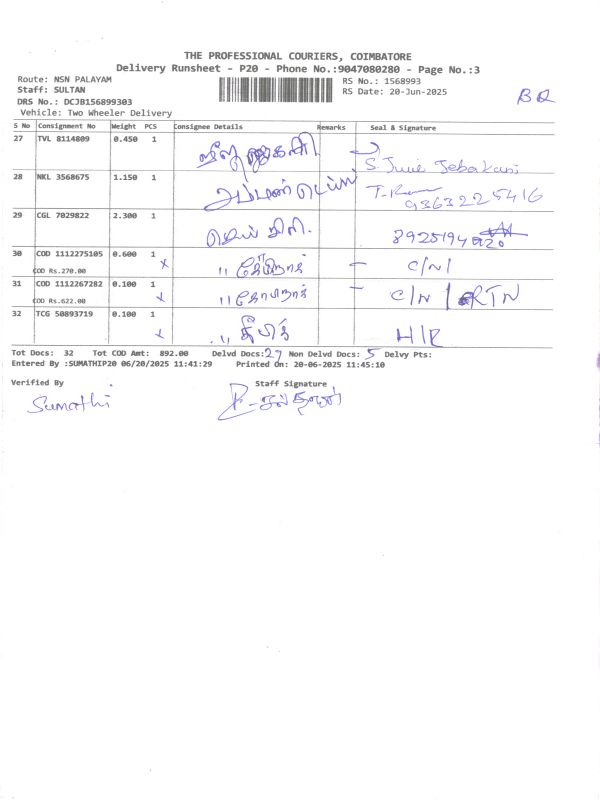 THE PROFESSIONAL COURIERS, COIMBATORE
Delivery Runsheet - P20 - Phone No.:9047080280 - Page No.:3
Route: NSN PALAYAM
RS No.: 1568993
Staff: SULTAN
RS Date: 20-Jun-2025
DRS No.: DCJB156899303
BR
Vehicle: Two Wheeler Delivery
S No Consignment No Weight PCS Consignee Details Remarks Seal & Signature
27 TVL 8114809 0.450 1 S. Junie Jebakani
28 NKL 3568675 1.150 1 9363225416
29 CGL 7029822 2.300 1
30 COD 1112275105 0.600 1 x - C/N/
COD Rs.270.00
31 COD 1112267282 0.100 1 x - C/N / RTN
COD Rs.622.00
32 TCG 50893719 0.100 1 x H/R
Tot Docs: 32 Tot COD Amt: 892.00 Delvd Docs:27 Non Delvd Docs: 5 Delvy Pts:
Entered By :SUMATHIP20 06/20/2025 11:41:29 Printed On: 20-06-2025 11:45:10
Verified By Staff Signature
Sumathi